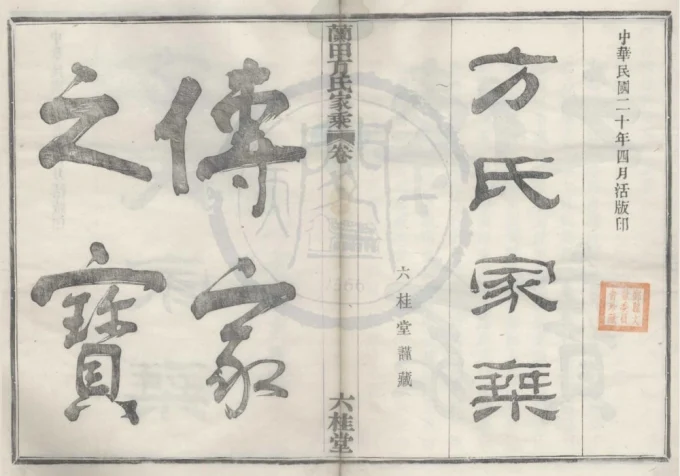 中華民國二十年四月活版印
方氏家乘
六桂堂謹藏
蘭田方氏家乘 卷
六桂堂
傳家
之寶